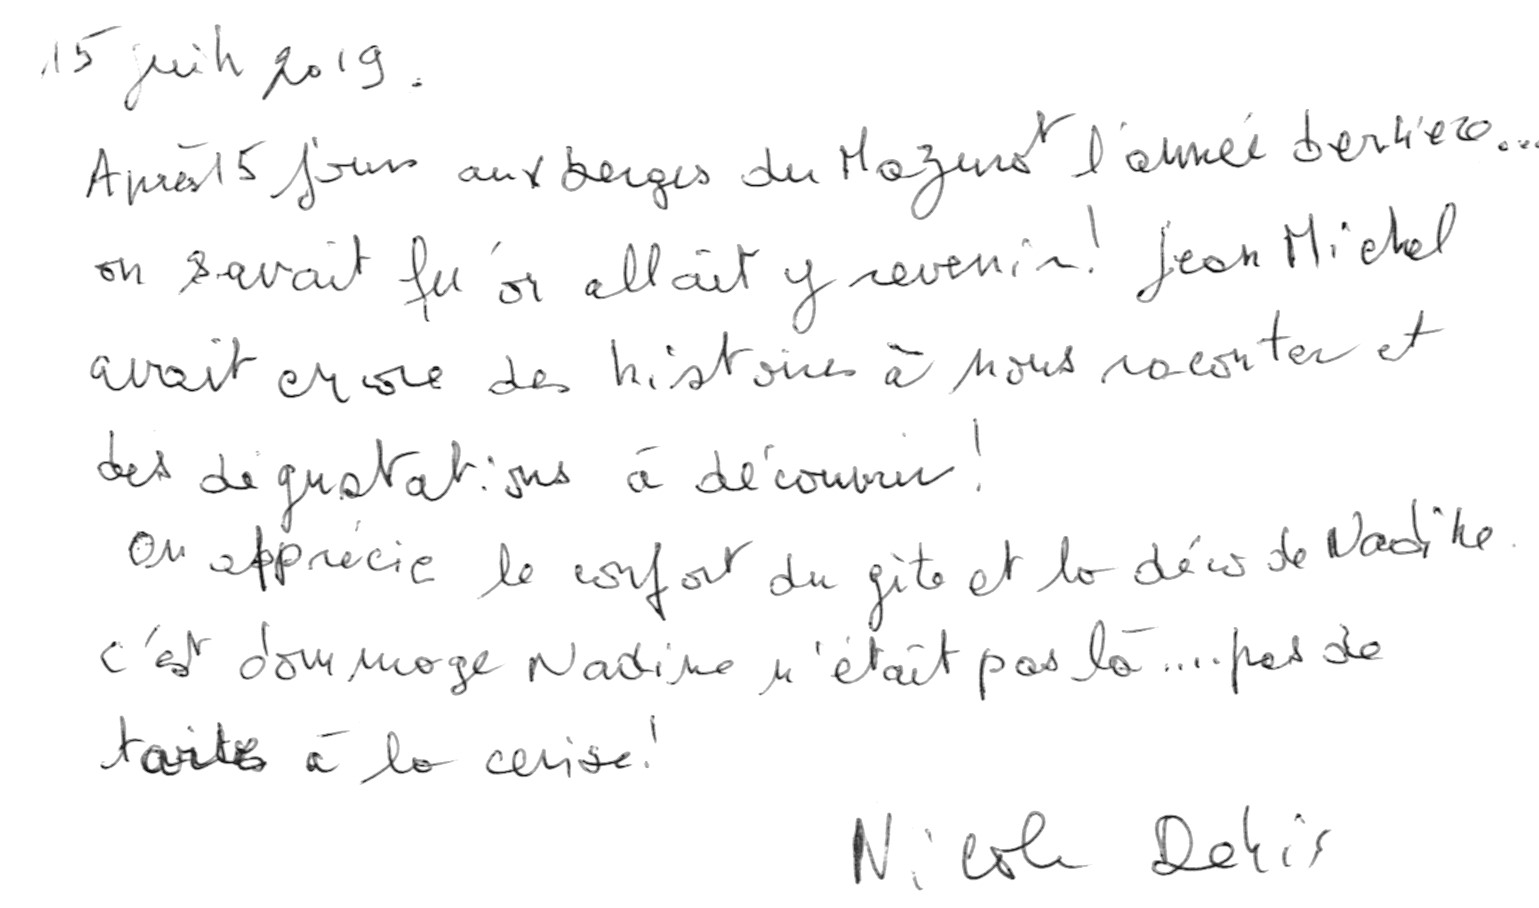 15 juin 2019.
Après 15 jours aux berges du Mazurot l'année dernière...
on savait qu'on allait y revenir! Jean Michel
avait encore des histoires à nous raconter et
des dégustations à découvrir!
On apprécie le confort du gite et la déco de Nadine.
c'est dommage Nadine n'était pas là .... pas de
tartes à la cerise!
Nicole Denis